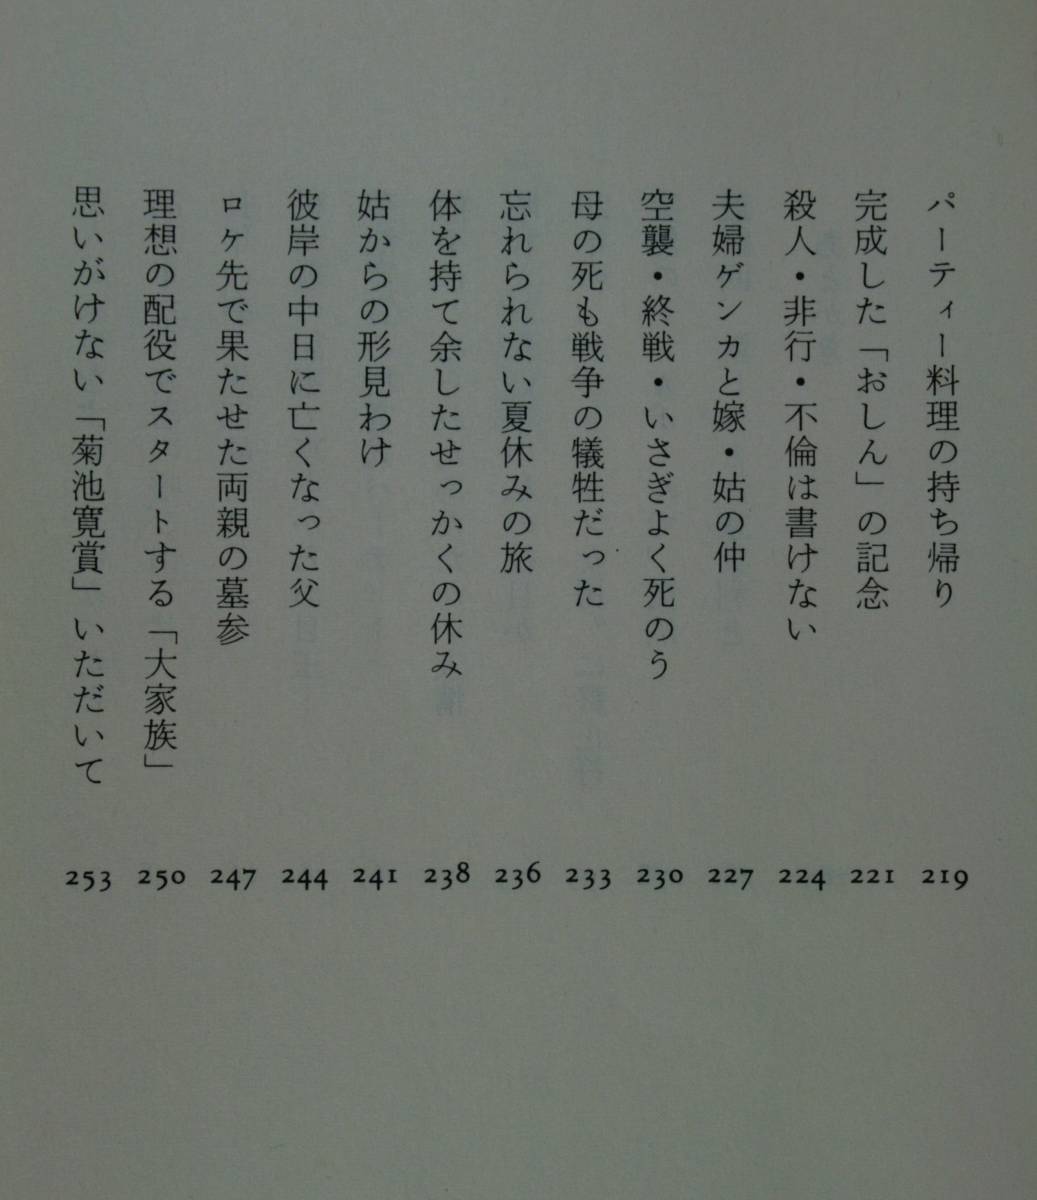 パーティー料理の持ち帰り 219
完成した「おしん」の記念 221
殺人・非行・不倫は書けない 224
夫婦ゲンカと嫁・姑の仲 227
空襲・終戦・いさぎよく死のう 230
母の死も戦争の犠牲だった 233
忘れられない夏休みの旅 236
体を持て余したせっかくの休み 238
姑からの形見わけ 241
彼岸の中日に亡くなった父 244
ロケ先で果たせた両親の墓参 247
理想の配役でスタートする「大家族」 250
思いがけない「菊池寛賞」いただいて 253